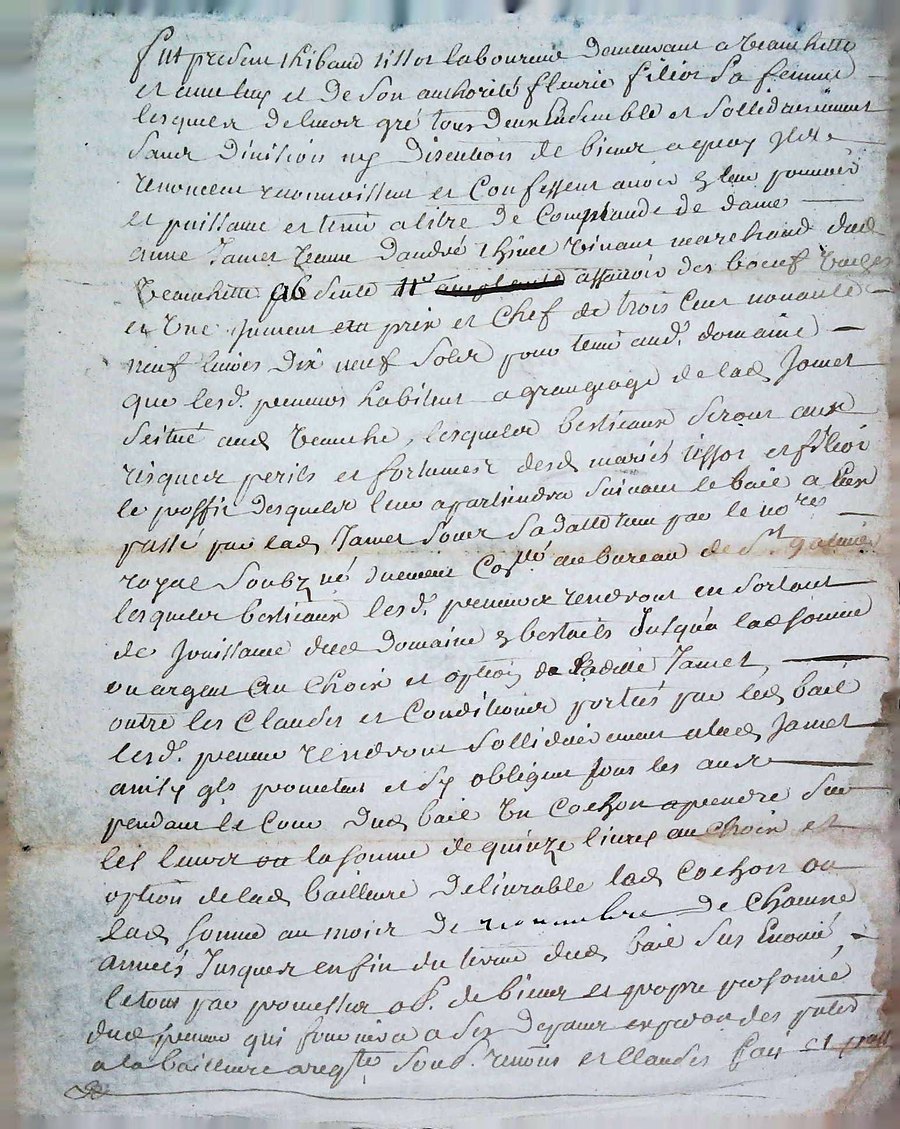 Fut present thibaud tissot laboureur demeurant a
et avec luy et de son authorité fleurie filiot sa femme
lesquels de leur gré tous deux Ensemble et sollidairement
sans division ny discution de biens a quoy
renoncent reconnoissent et Confessent avoir en leur pouvoir
et puissance et tenir a titre de Commande de dame
anne Jamet veuve d'andré vivant marchand dud
absente assavoir des boeufs
et une jument prix et Chef de trois Cent nonante
neuf livres dix neuf sols pour tenir aud. domaine
que lesd. preneurs habitent a grangeage de lad Jamet
seitué aud lesquels bestieaux seront aux
risques perils et fortunes desd mariés tissot et filiot
le proffit desquels leur apartiendra suivant le bail a
passé par lad Jamet sous sa datte par le no.res
royal soubz.né duement Co.llé au bureau de S.t galmier
lesquels bestieaux lesd. preneurs rendront en sortant
de Jouissance dud domaine en bestails Jusqu'a lad somme
ou argent au Choix et option de ladite Jamet
outre les Clauses et Conditions portées par led bail
lesd. preneurs rendront sollidairement a lad Jamet
ainsy qls promettent et s'y obligent tous les ans
pendant le Cour dud bail Un Cochon a prendre sur
les leurs ou la somme de quinze livres au choix et
option de lad bailleure délivrable lad Cochon ou
lad somme au mois de novembre de Chacune
années Jusques en fin du terme dud bail sus Enoncé,
le tout par promesses ob. de biens et propre personne
dud preneur qui fournira a ses depans expedon des
a la bailleure soub. renons et Clauses fait et